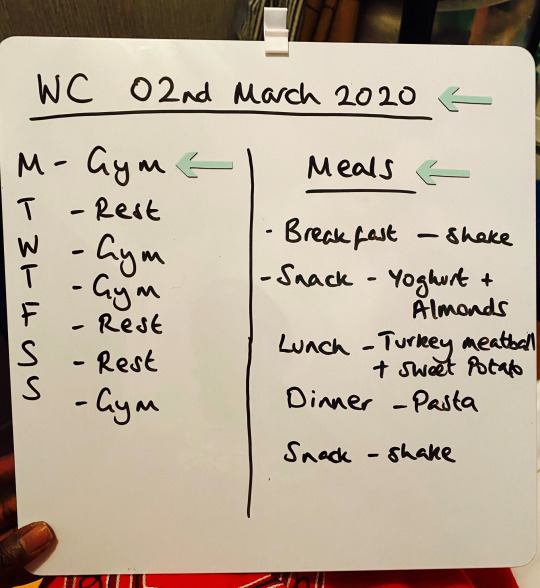 WC 02nd March 2020
M - Gym
T - Rest
W - Gym
T - Gym
F - Rest
S - Rest
S - Gym
Meals
- Breakfast - shake
- Snack - Yoghurt +
Almonds
Lunch - Turkey meatball
+ sweet Potato
Dinner - Pasta
Snack - shake